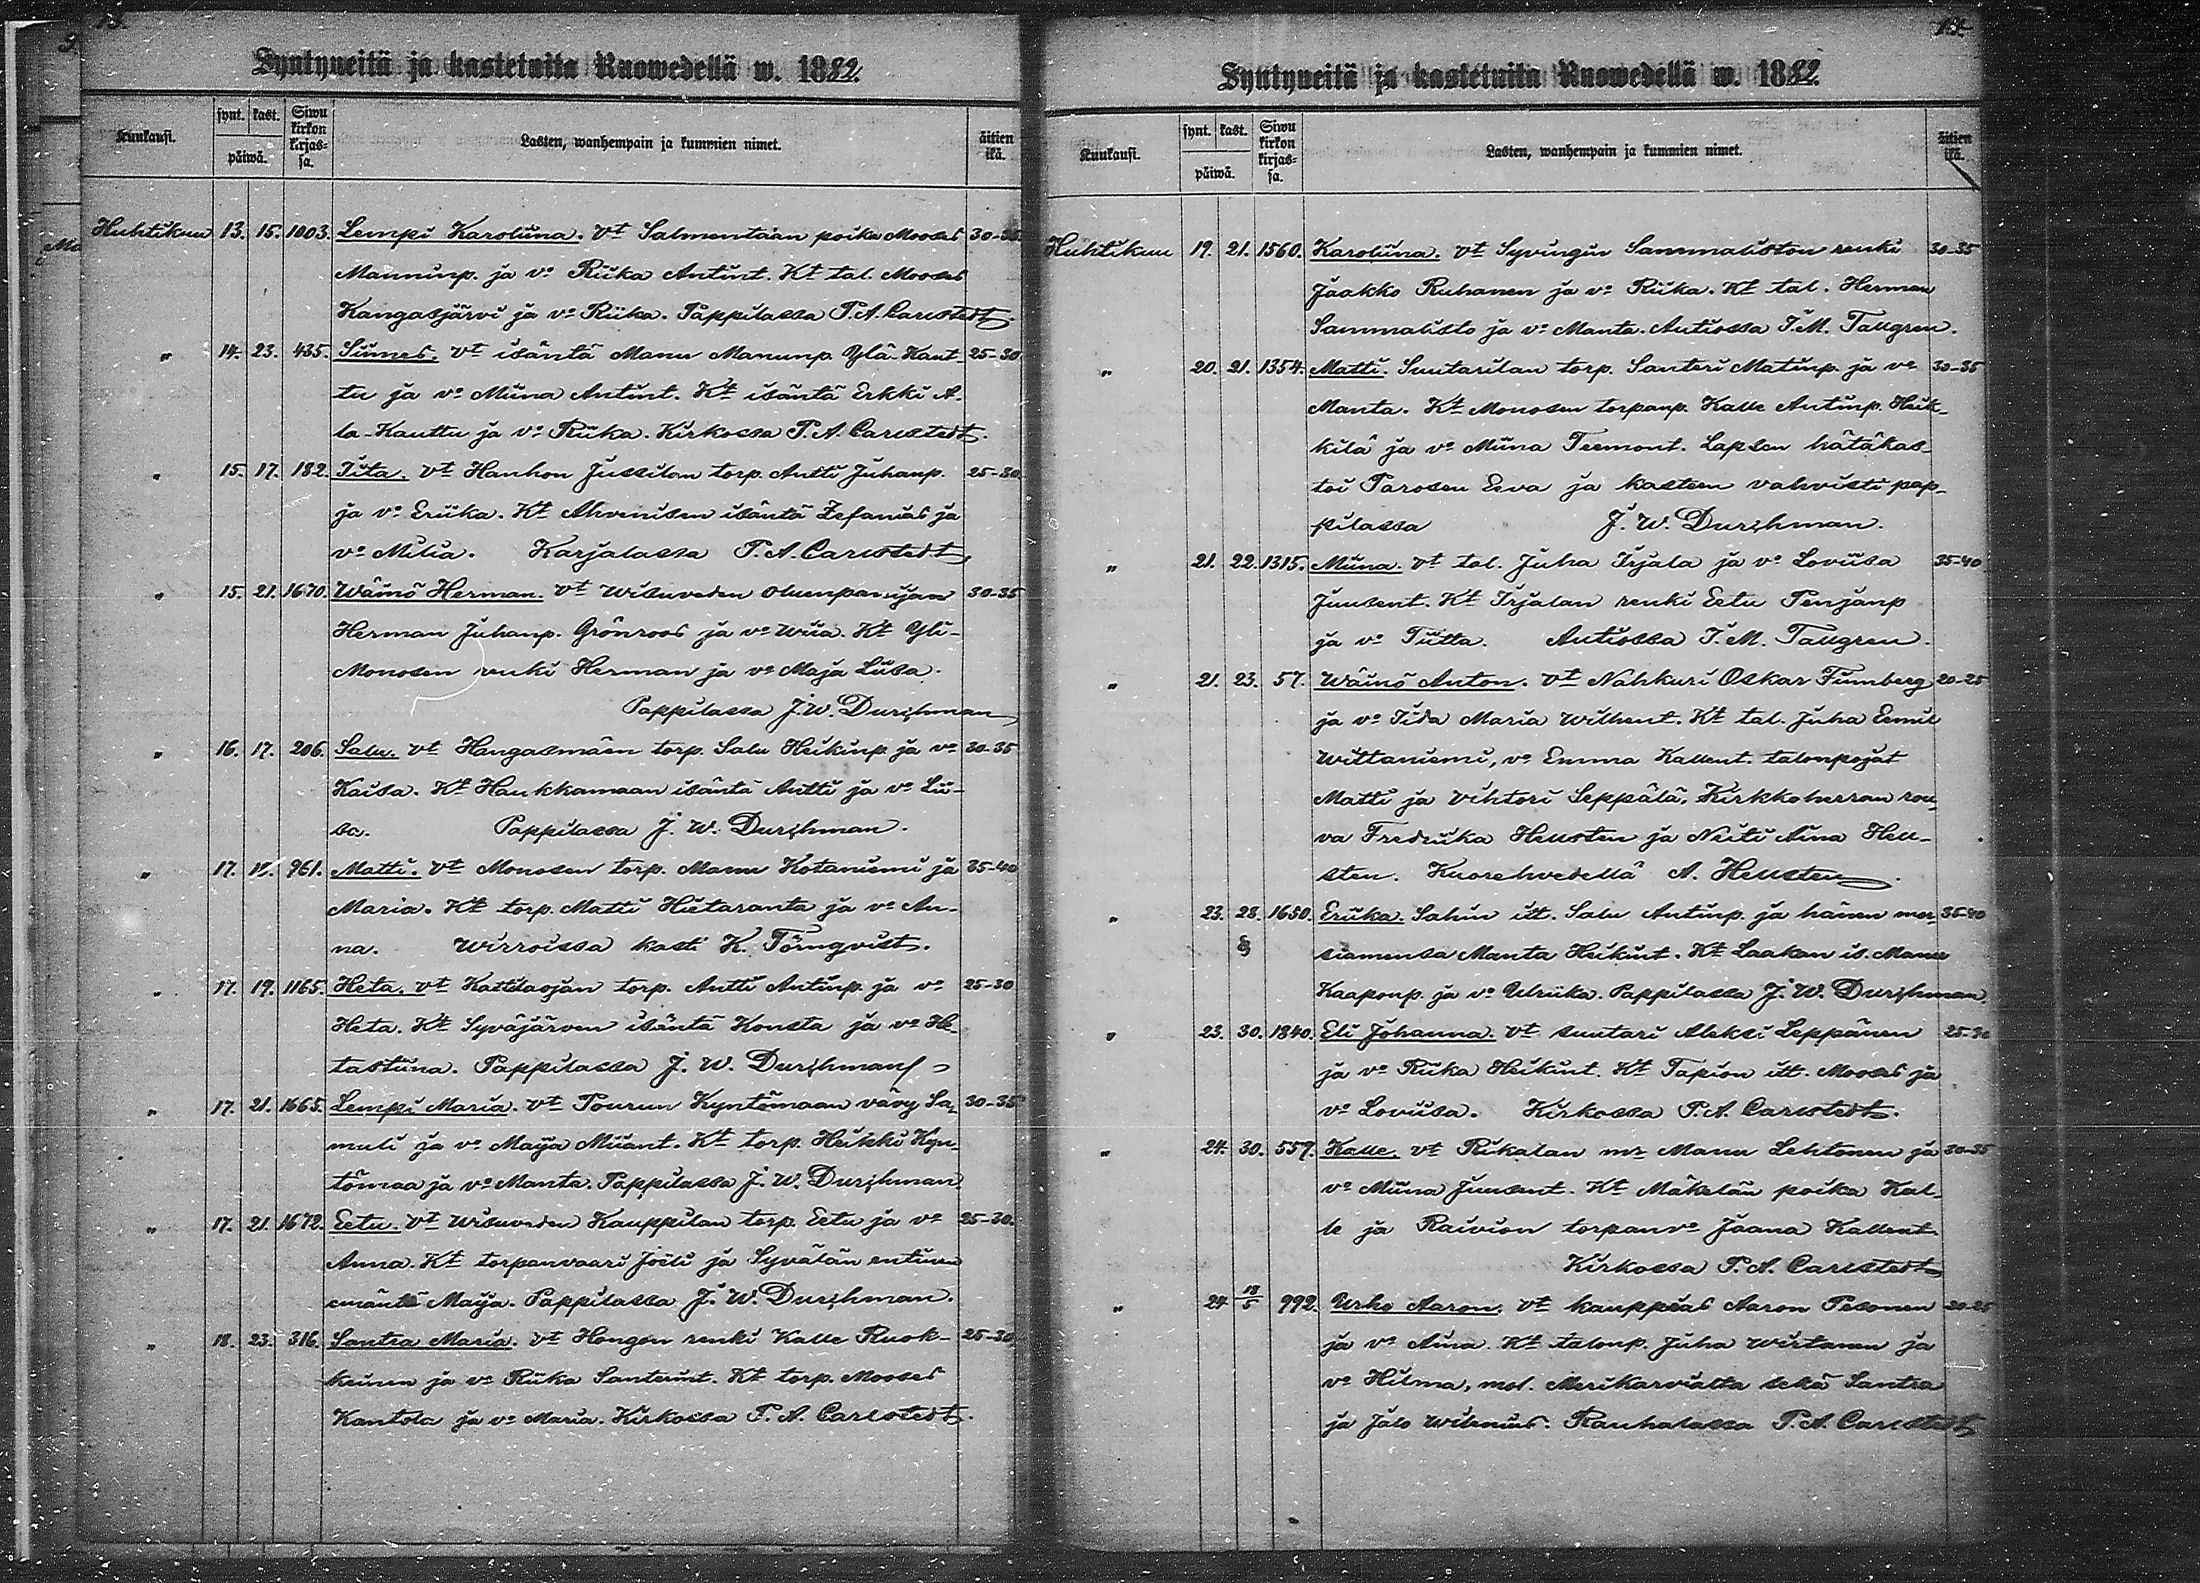 Syntyneitä ja kastetuita Ruowedellä w. 1882.
Kuukausi.
synt. kast.
päiwä.
Siwu
kirkon
kirjas=
sa.
Lasten, wanhempain ja kummien nimet.
äitien
ikä.
Huhtikuu 13. 15. 1803. Lempi Karoliina. Vt Salmentaan poika Mooses 30-35
Manninp. ja vo Riika Antint. Kt tal. Mooses
Kangasjärvi ja vo Riika. Pappilassa P. A. Carlstedt.
" 14. 23. 435. Siimes. Vt isäntä Manu Manunp. Ylä-Kaut- 25-30
tu ja vo Miina Antint. Kt isäntä Erkki A-
la-Kauttu ja vo Riika. Kirkossa P. A. Carlstedt.
" 15. 17. 182. Iita. Vt Hanhon Jussilan torp. Antti Juhanp. 25-30
ja vo Eriika. Kt Ahvenisen isäntä Zefanias ja
vo Milia. Karjalassa P. A. Carlstedt
" 15. 21. 1670. Wäinö Herman. Vt Wisuveden oluenpanijan 30-35
Herman Juhanp. Grönroos ja vo Wiia. Kt Yli-
Monosen renki Herman ja vo Maja Liisa.
Pappilassa J. W. Durchman
" 16. 17. 206. Salu. Vt Hangasmäen torp. Salu Heikinp. ja vo 30-35
Kaisa. Kt Haukkamaan isäntä Antti ja vo Lii-
sa. Pappilassa J. W. Durchman.
" 17. 961. Matti. Vt Monosen torp. Manu Kotaniemi ja 35-40
Maria. Kt torp. Matti Hietaranta ja vo An-
na. Wirroissa kasti K. Törnqvist.
" 17. 19. 1165. Heta. Vt Kattilaojan torp. Antti Antinp. ja vo 25-30
Heta. Kt Syväjärven isäntä Konsta ja vo He-
tastiina. Pappilassa J. W. Durchman
" 17. 21. 1665. Lempi Maria. Vt Pourun Kyntömaan vävy Sa- 30-35
muli ja vo Maija Miiant. Kt torp. Heikki Kyn-
tömaa ja vo Manta. Pappilassa J. W. Durchman.
" 17. 21. 1672. Eetu. Vt Wisuveden Kauppilan torp. Eetu ja vo 25-30.
Anna. Kt torpanvaari Joeli ja Syvälän entinen
emäntä Maija. Pappilassa J. W. Durchman.
" 18. 23. 316. Santra Maria. Vt Hongon renki Kalle Ruok- 25-30
keinen ja vo Riika Santerint. Kt torp. Mooses
Kantola ja vo Maria. Kirkossa P. A. Carlstedt.
Syntyneitä ja kastetuita Ruowedellä w. 1882.
Kuukausi.
synt. kast.
päiwä.
Siwu
kirkon
kirjas=
sa.
Lasten, wanhempain ja kummien nimet.
äitien
ikä.
Huhtikuu 19. 21. 1560. Karoliina. Vt Syvingin Sammaliston renki 30-35
Jaakko Ruhanen ja vo Riika. Kt tal. Herman
Sammalisto ja vo Manta. Autiossa I. M. Tallgren.
" 20. 21. 1354. Matti. Suutarilan torp. Santeri Matinp. ja vo 30-35
Manta. Kt Monosen torpanp. Kalle Antinp. Heik-
kilä ja vo Miina Teemont. Lapsen hätäkas-
toi Parosen Eeva ja kasteen vahvisti pap-
pilassa J. W. Durchman.
" 21. 22. 1315. Miina. Vt tal. Juha Irjala ja vo Loviisa 35-40
Juusent. Kt Irjalan renki Eetu Penjanp
ja vo Tiitta. Autiossa I. M. Tallgren.
" 21. 23. 57. Wäinö Anton. Vt Nahkuri Oskar Finnberg 20-25
ja vo Iida Maria Wilhent. Kt tal. Juha Eemil
Wittaniemi, vo Emma Kallent. talonpojat
Matti ja Vihtori Seppälä, Kirkkoherran rou-
va Fredriika Hellsten ja Neiti Aina Hell-
sten. Kuorehvedellä A. Hellsten.
" 23. 28. 1650. Eriika. Salun itt. Salu Antinp. ja hänen mor- 35-40
siamensa Manta Heikint. Kt Laakan is. Manu
Kaaponp. ja vo Ulriika. Pappilassa J. W. Durchman.
" 23. 30. 1840. Eli Johanna. Vt suutari Aleksi Leppänen 25-30
ja vo Riika Heikint. Kt Tapion itt. Mooses ja
vo Loviisa. Kirkossa P. A. Carlstedt.
" 24. 30. 559. Kalle. Vt Rikalan mr Manu Lehtonen ja 30-35
vo Miina Juusent. Kt Mäkelän poika Kal-
le ja Raivion torpanvo Jaana Kallent.
Kirkossa P. A. Carlstedt
" 24 18/5 992. Urho Aaron. Vt kauppias Aaron Pesonen 20-25
ja vo Aina. Kt talonp. Juha Wirtanen ja
vo Hilma, mol. Merikarvialta sekä Santra
ja Jalo Wilenius. Rauhalassa P. A. Carlstedt